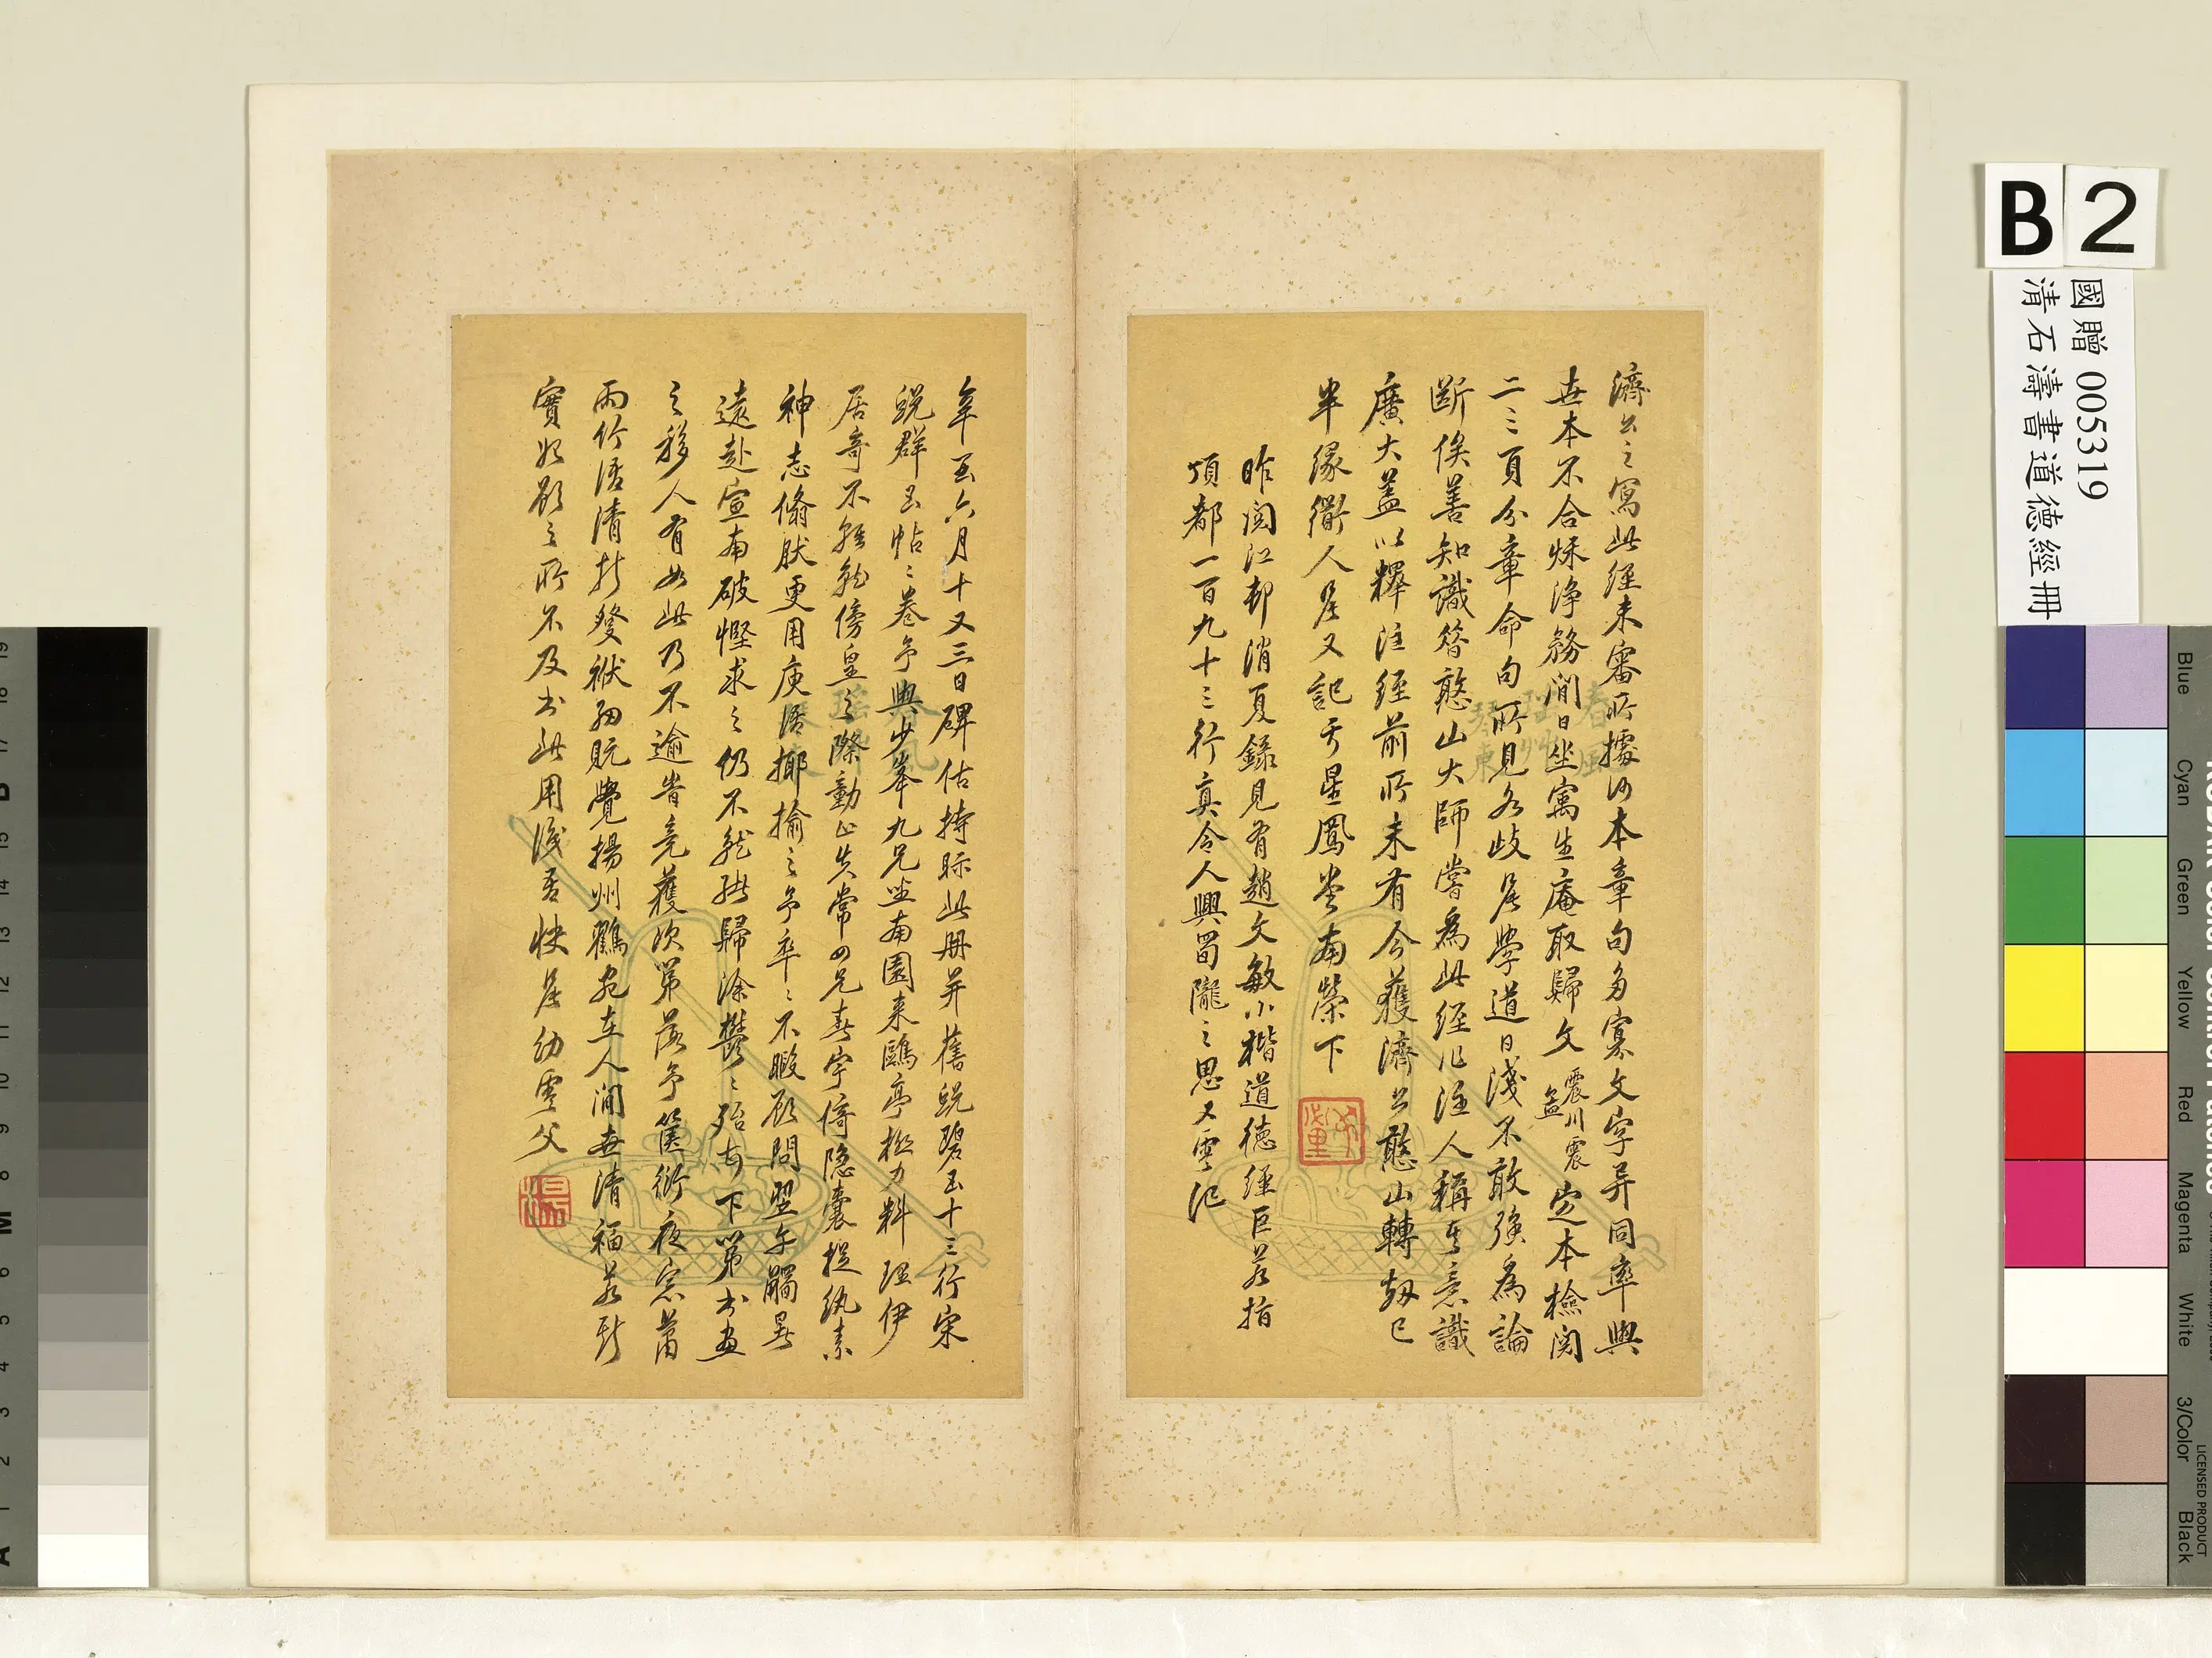 濟公之寫此經未審所據何本章句多寡文字异同率與
世本不合秌淨務閒日坐寓生庵取歸文震川震孟定本檢閱
二三頁分章命句所見各歧星學道日淺不敢強為論
斷俟善知識答憨山大師嘗為此經作注人稱其意識
廣大蓋以釋注經前所未有今獲濟公憨山轉刼已
半緣衛人星又記于星鳳堂南榮下
昨閱江邨消夏錄見有趙文敏小楷道德經巨若指
頂都一百九十三行真令人興蜀隴之思又雲記
年至六月十又三日碑估持眎此册并舊蛻碧玉十三行宋
蛻群玉帖二卷予與少峯九兄坐南園來鷗亭極力料理伊
居奇不能就傍皇之際動止失常四兄壽宇倚隱囊捉紈素
神志翛肰更用庾語揶揄之予卒二不暇顧問翌午觸暑
遠赴宣南破慳求之仍不就遂歸涂鬱二殆甚下第書畫
之移人有如此乃不逾旹竟獲次第落予篋衍夜窓蕭
雨竹語清於發袱細翫覺揚州鶴宛在人間世清福若斯
實始願之所不及書此用識吾快星幼雲父
國贈 005319
清石濤書道德經冊
B 2
Blue
Cyan
Green
Yellow
Red
Magenta
White
3/Color
Black
LICENSED PRODUCT